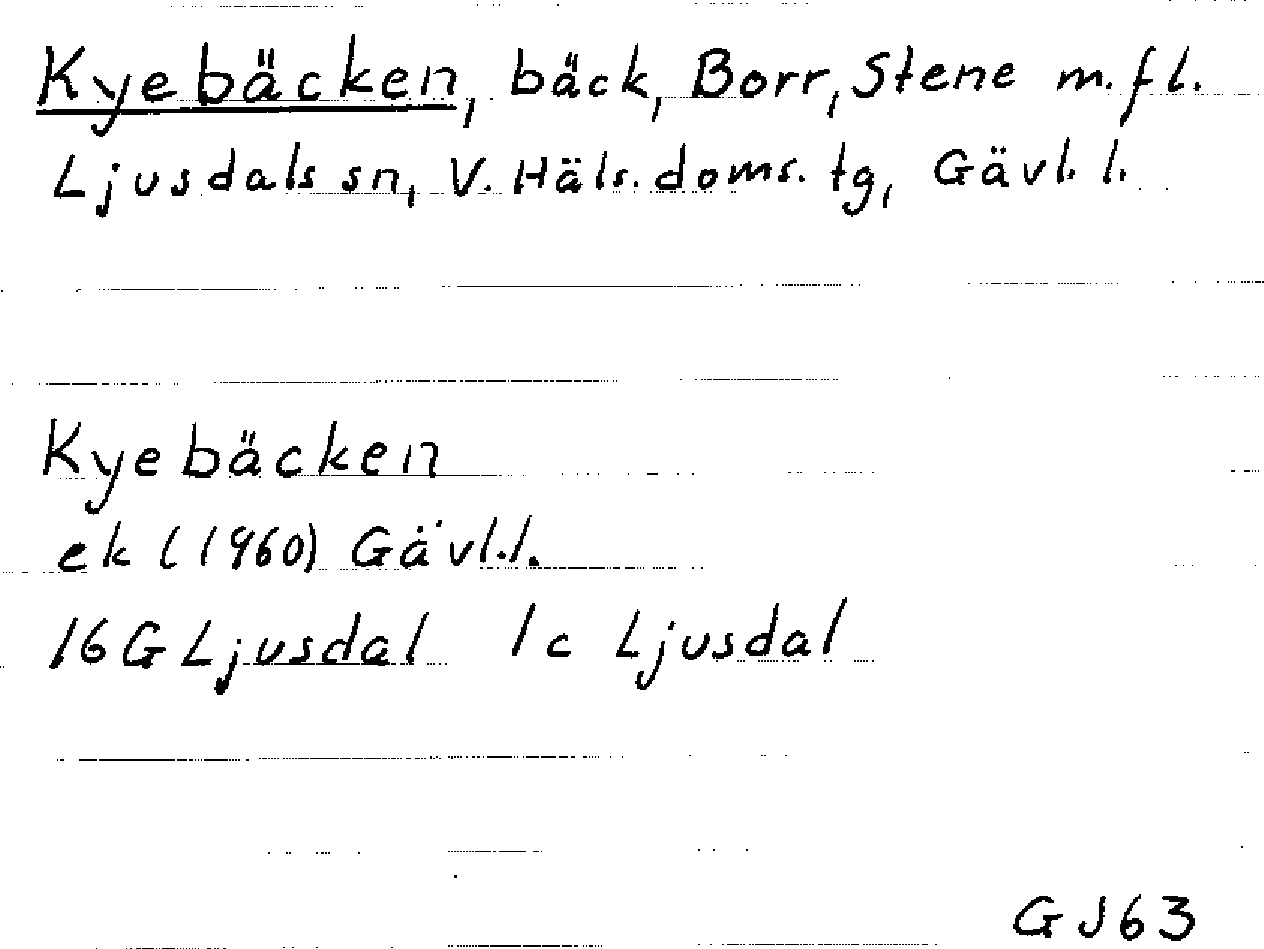 Kyebäcken, bäck, Borr, Stene m.fl.
Ljusdals sn, V. Häls. doms. tg, Gävl. l.
Kyebäcken
ek (1960) Gävl.l.
16G Ljusdal 1c Ljusdal
GJ63